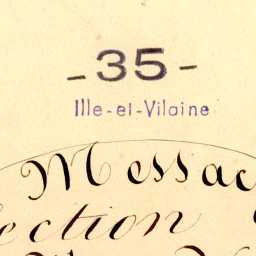 - 35 -
Ille-et-Vilaine
Messac
ection